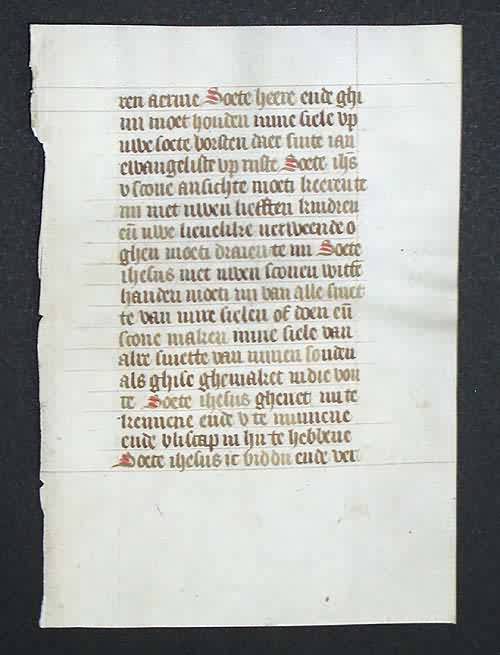 ren arme Soete heere ende ghi
mi moet houden mine siele up
uwe soete borsten daer sinte ian
ewangeliste up ruste Soete ihs
u scone ansichte moeti keeren te
mi met uwen liefften kindren
eñ uwe lieuelike uerweende o
ghen moeti draien te mi Soete
ihesus met uwen sconen witte
handen moeti mi van alle smet
te van mire sielen of doen eñ
scone maken mine siele van
alre smette van minen sonden
als ghise ghemaket in die von
te Soete ihesus ghenet mi te
kennene ende u te minnene
ende bliscap in hu te hebbene
Soete ihesus ic bidd u ende ver